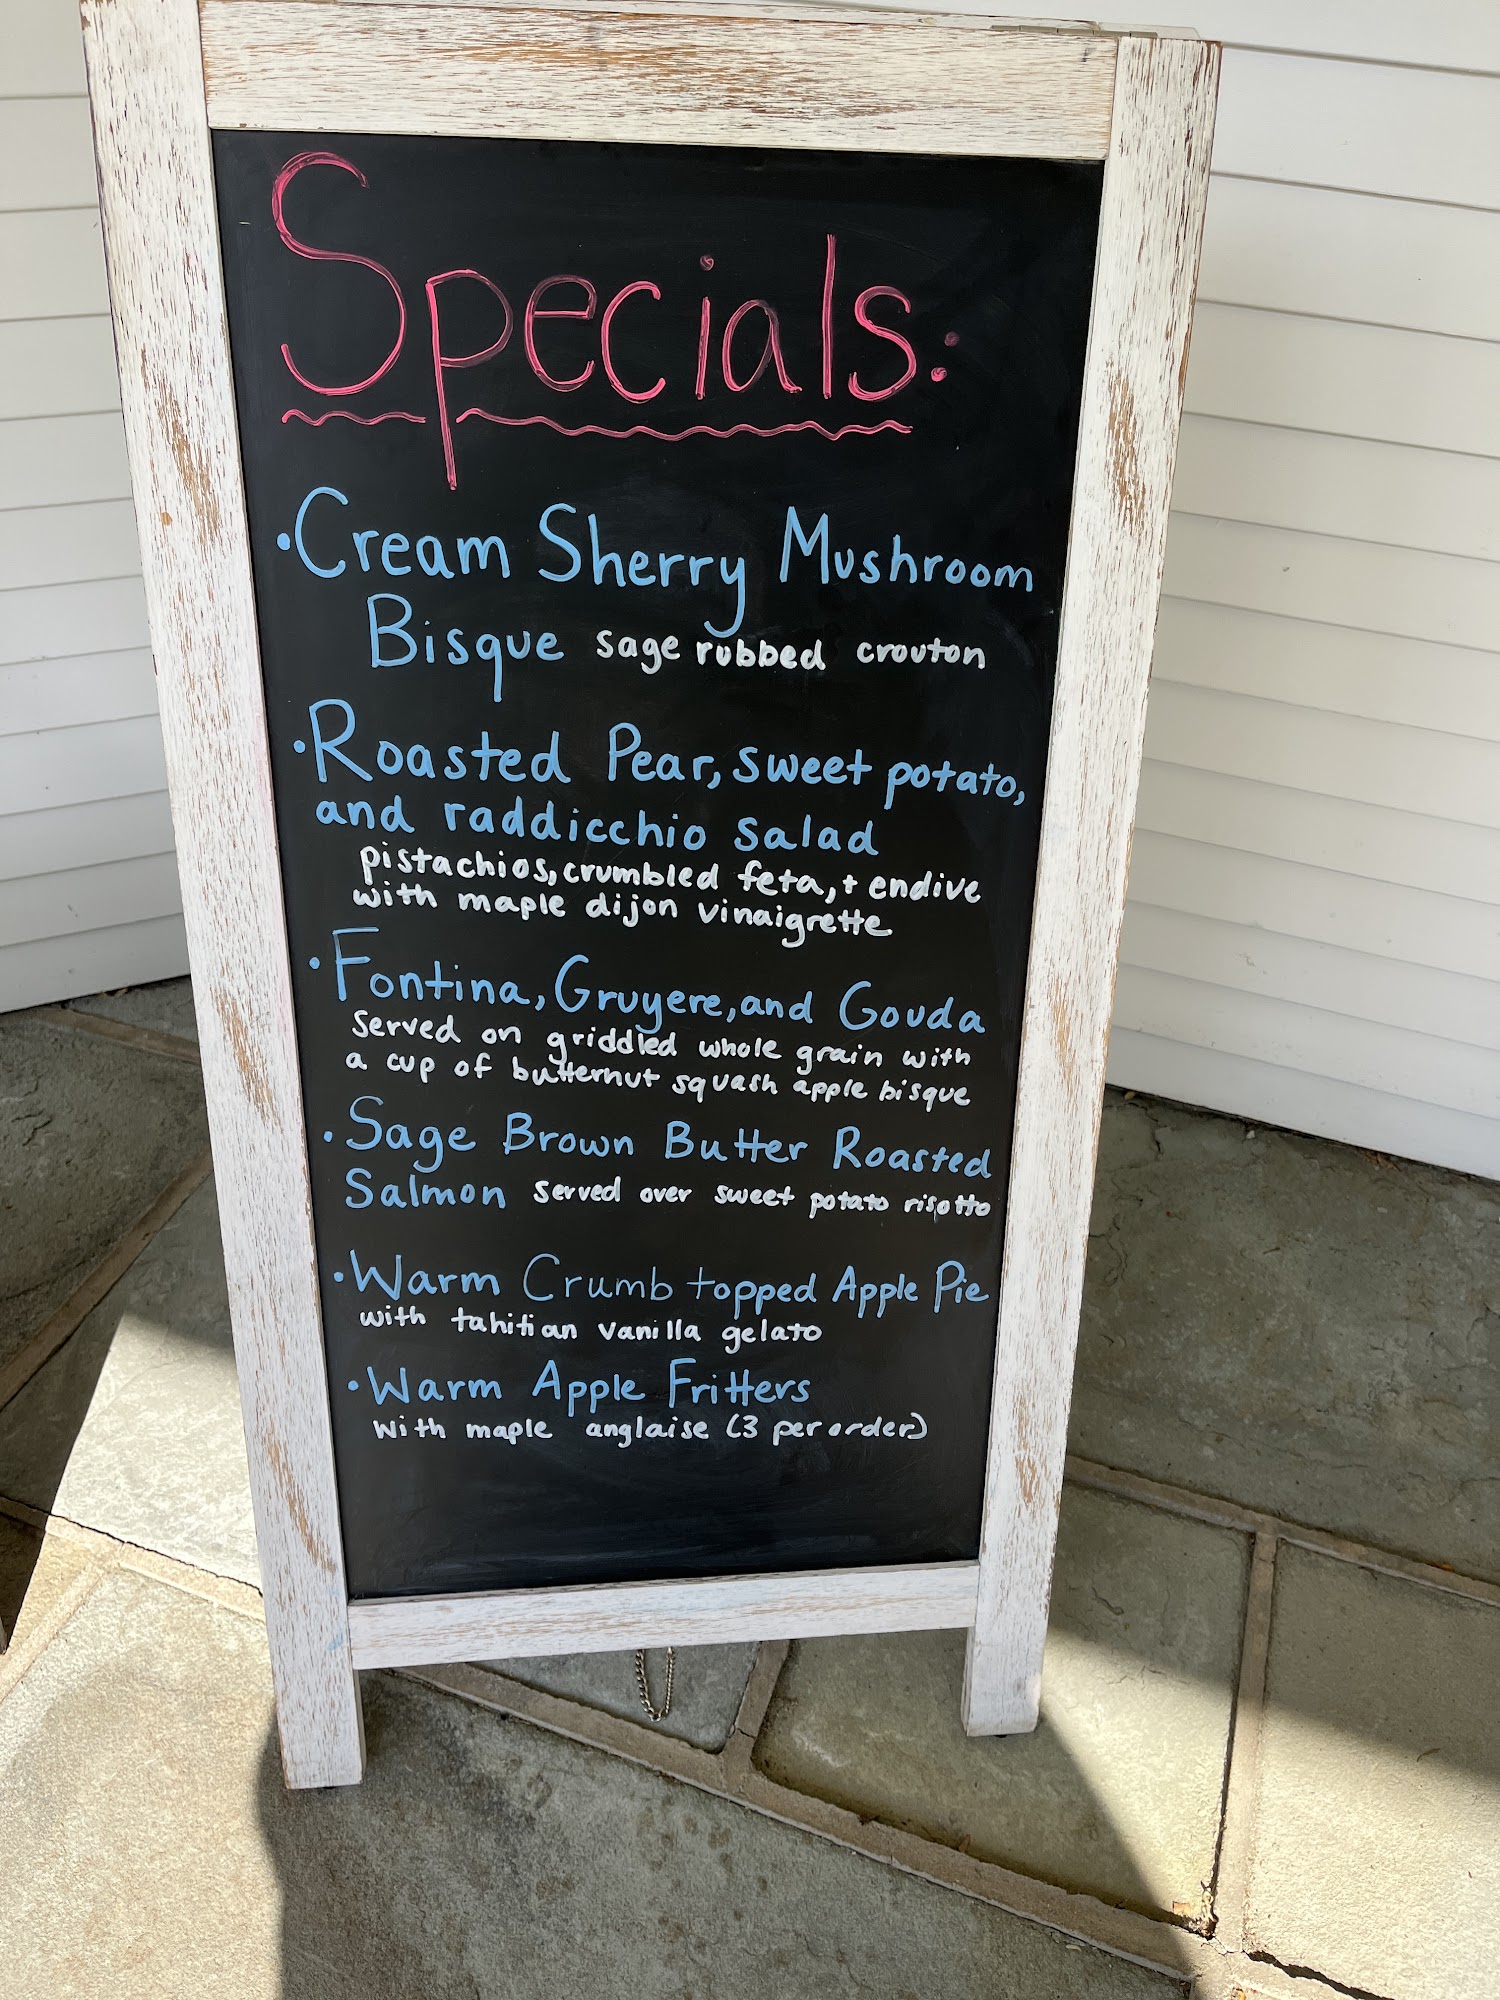 Specials:
•Cream Sherry Mushroom
Bisque sage rubbed crouton
•Roasted Pear, sweet potato,
and raddicchio salad
pistachios, crumbled feta, + endive
with maple dijon vinaigrette
•Fontina, Gruyere, and Gouda
served on griddled whole grain with
a cup of butternut squash apple bisque
•Sage Brown Butter Roasted
Salmon served over sweet potato risotto
•Warm Crumb topped Apple Pie
with tahitian vanilla gelato
•Warm Apple Fritters
with maple anglaise (3 per order)